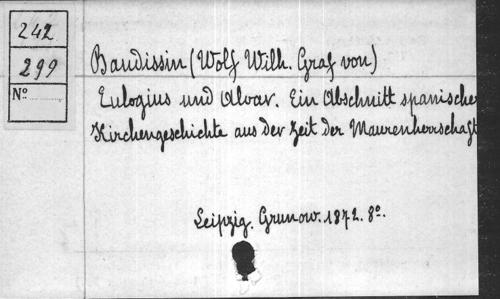 242
299
Nº
Baudissin (Wolf Wilh. Graf von)
Eulogius und Alvar. Ein Abschnitt spanischer
Kirchengeschichte aus der Zeit der Maurenherrschaft
Leipzig. Grunow. 1872. 8º.